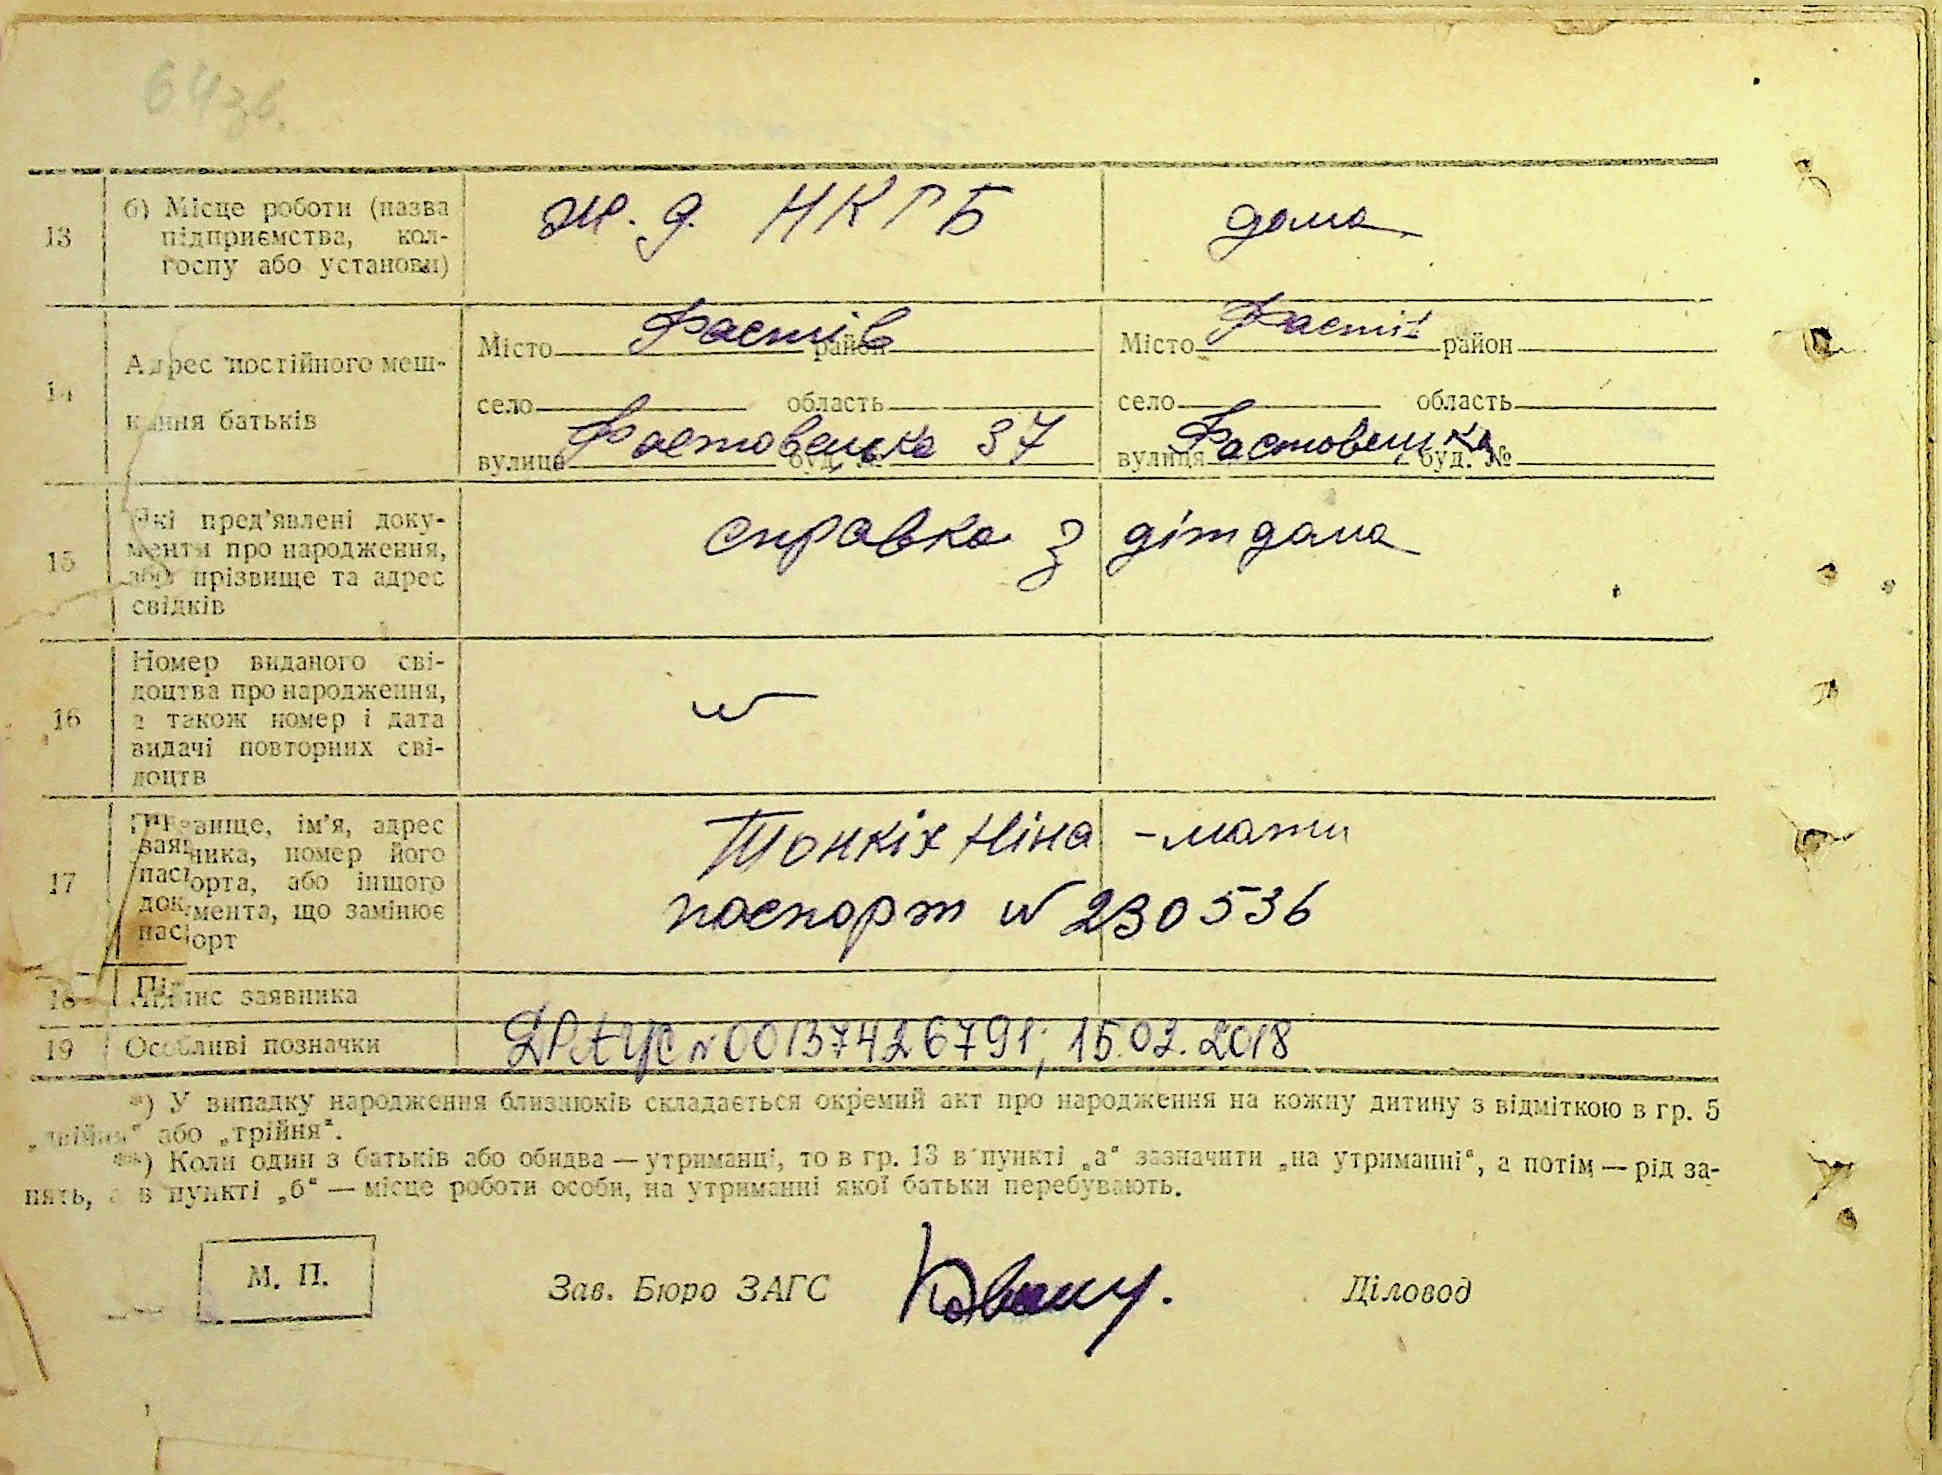 64зв.
13
б) Місце роботи (назва
підприємства, кол-
госпу або установи)
ж. д. НКГБ
дома
14
Адрес постійного меш-
кання батьків
Місто Фастів район
село область
вулиця Фастовецька 37 буд. №
Місто Фастів район
село область
вулиця Фастовецька буд. №
15
Які пред'явлені доку-
менти про народження,
або прізвище та адрес
свідків
справка з дітдома
16
Номер виданого сві-
доцтва про народження,
а також номер і дата
видачі повторних сві-
доцтв
№
17
Прізвище, ім'я, адрес
заявника, номер його
паспорта, або іншого
документа, що замінює
паспорт
Тонкіх Ніна - мати
паспорт № 230536
18
Підпис заявника
19
Особливі позначки
ДРАЦС № 00137426791; 15.02.2018
*) У випадку народження близнюків складається окремий акт про народження на кожну дитину з відміткою в гр. 5
„двійня“ або „трійня“.
**) Коли один з батьків або обидва — утриманці, то в гр. 13 в пункті „а“ зазначити „на утриманні“, а потім — рід за-
нять, а в пункті „б“ — місце роботи особи, на утриманні якої батьки перебувають.
М. П.
Зав. Бюро ЗАГС
Діловод